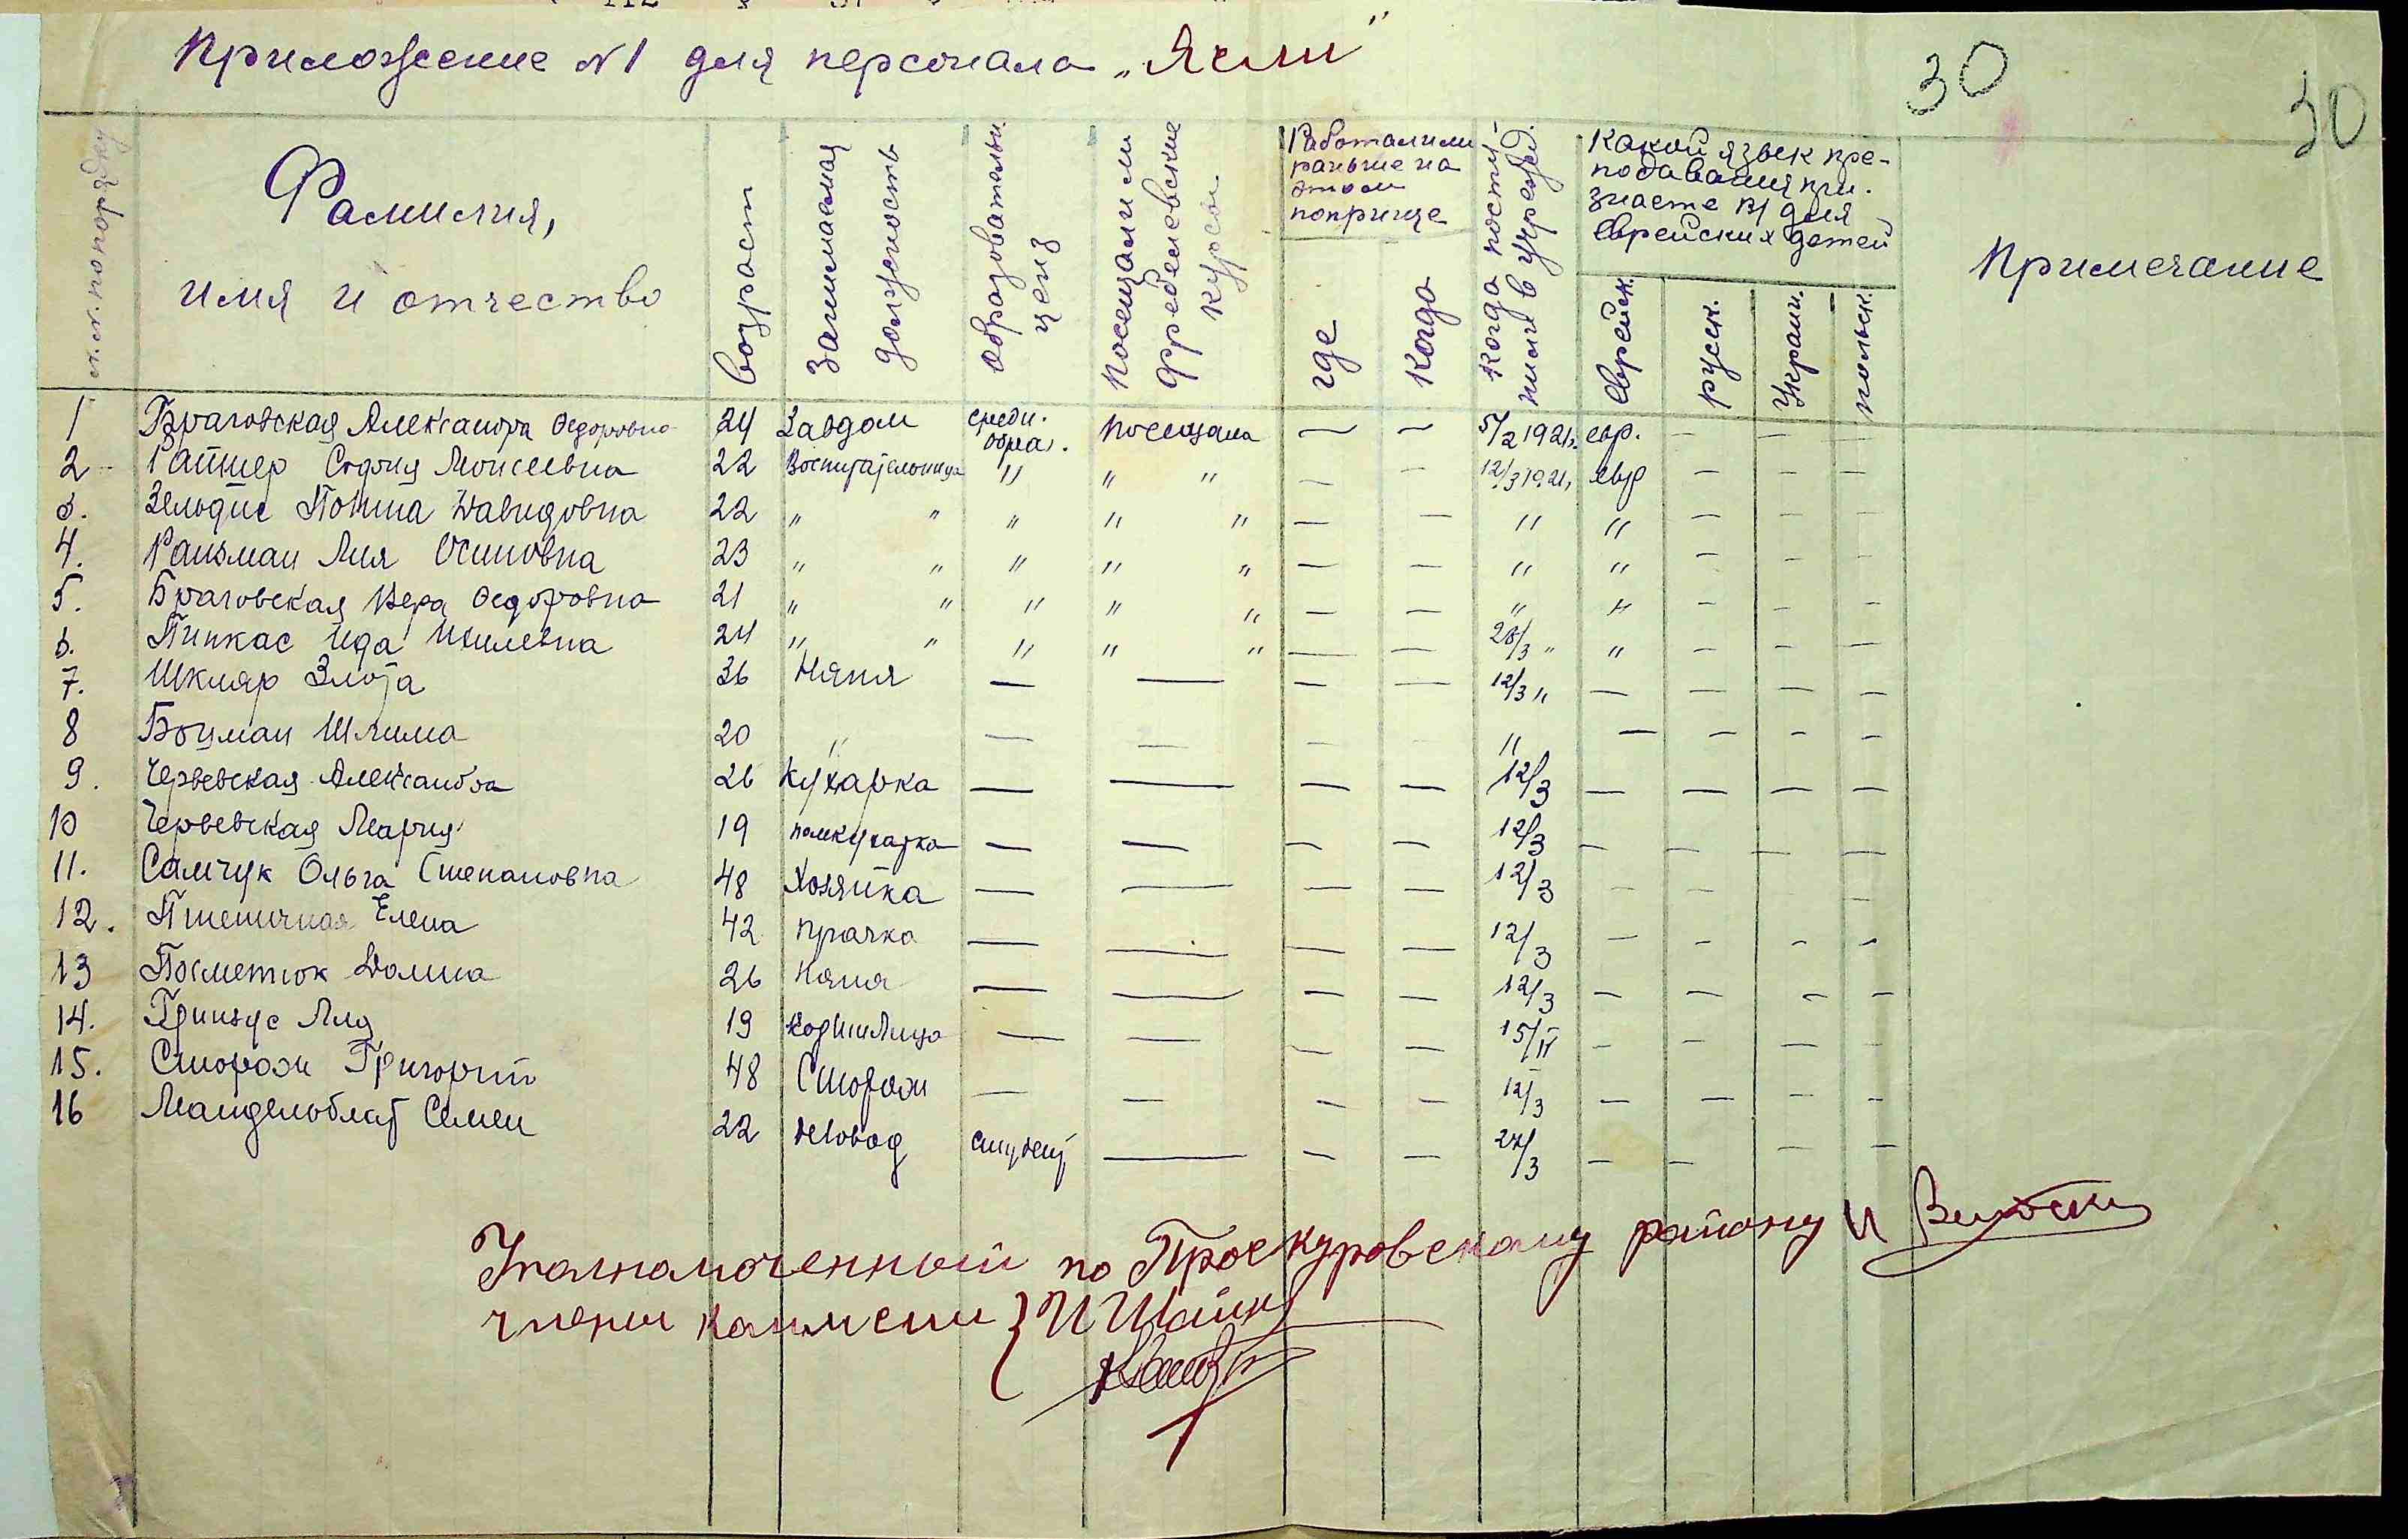 Приложение №1 для персонала „Ясли"
30
30
№.№. по порядку
Фамилия,
имя и отчество
Возраст
Занимаемая должность
Образовательн. ценз
Посещали ли фребелевские курсы.
Работали ли раньше на этом поприще
где
когда
Когда поступили в учрежд.
Какой язык преподавания признаете Вы для Еврейских детей
Еврейск.
русск.
Украин.
польск.
Примечание
1 Браговская Александра Федоровна 24 Завдом средн. обра. посещала — — 5/2 1921г. евр. — — —
2 Райнер София Моисеевна 22 Воспитательница " " " — — 12/3 1921г. евр — — —
3. Зельдис Полина Давидовна 22 " " " " " — — " " — — —
4. Райзман Лия Осиповна 23 " " " " " — — " " — — —
5. Браговская Вера Федоровна 21 " " " " " — — " " — — —
6. Пинкас Ида 24 " " " " " — — 28/3 " " — — —
7. Шкляр Злота 36 Няня — — — — 12/3 " — — — —
8 Боцман Шлима 20 " — — — — " — — — —
9. Червевская Александра 26 Кухарка — — — — 12/3 — — — —
10 Червевская Мария 19 помкухарка — — — — 12/3 — — — —
11. Самчук Ольга Степановна 48 Хозяйка — — — — 12/3 — — — —
12. Пшеничная Елена 42 прачка — — — — 12/3 — — — —
13 Посметюк Домна 26 Няня — — — — 12/3 — — — —
14. Лия 19 кормилица — — — — 15/IV — — — —
15. Сторож Григорий 48 Сторож — — — — 12/3 — — — —
16 Мандельблат Семен 22 студент — — — 27/3 — — — —
Уполномоченный по Проскуровскому району И
члены комиссии } И